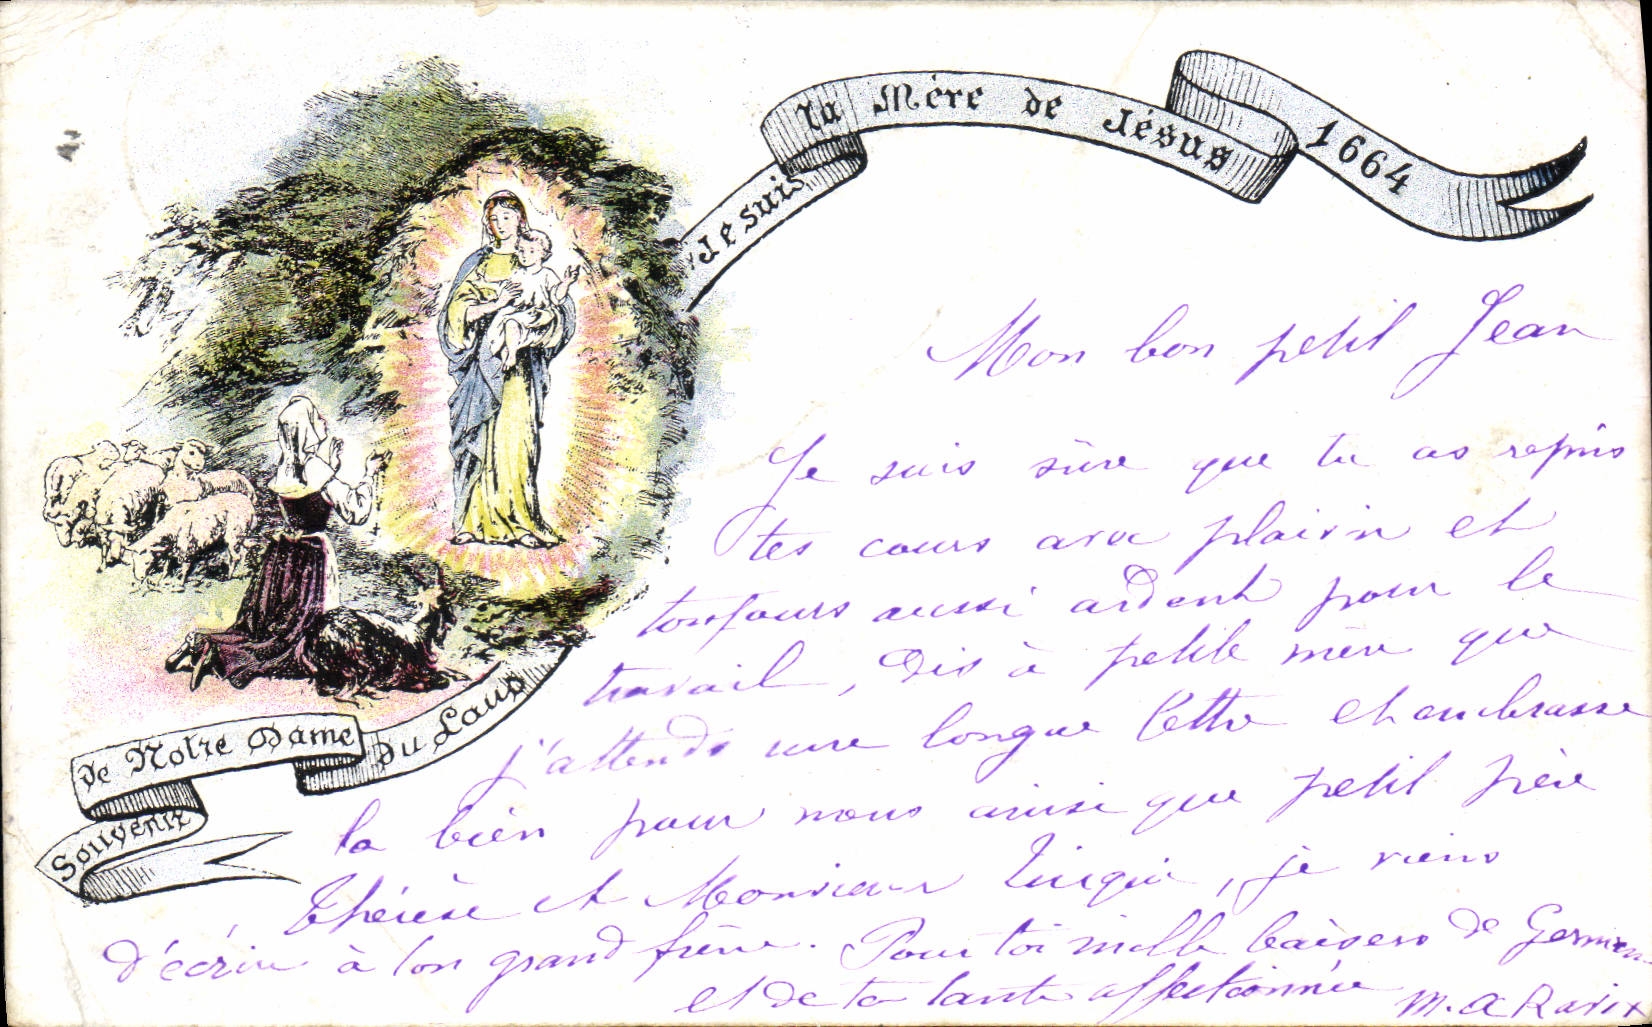 Je suis la Mère de Jésus 1664
Souvenir de Notre Dame du Laus
Mon bon petit Jean
Je suis sûre que tu as repris
tes cours avec plaisir et
toujours aussi ardent pour le
travail, Dis à petite mère que
j'attends une longue lettre et embrasse
la bien pour nous ainsi que petit père
Thérèse et Monsieur, je viens
d'écrire à ton grand frère. Pour toi mille baisers de Germaine
et de ta tante affectionnée M. A